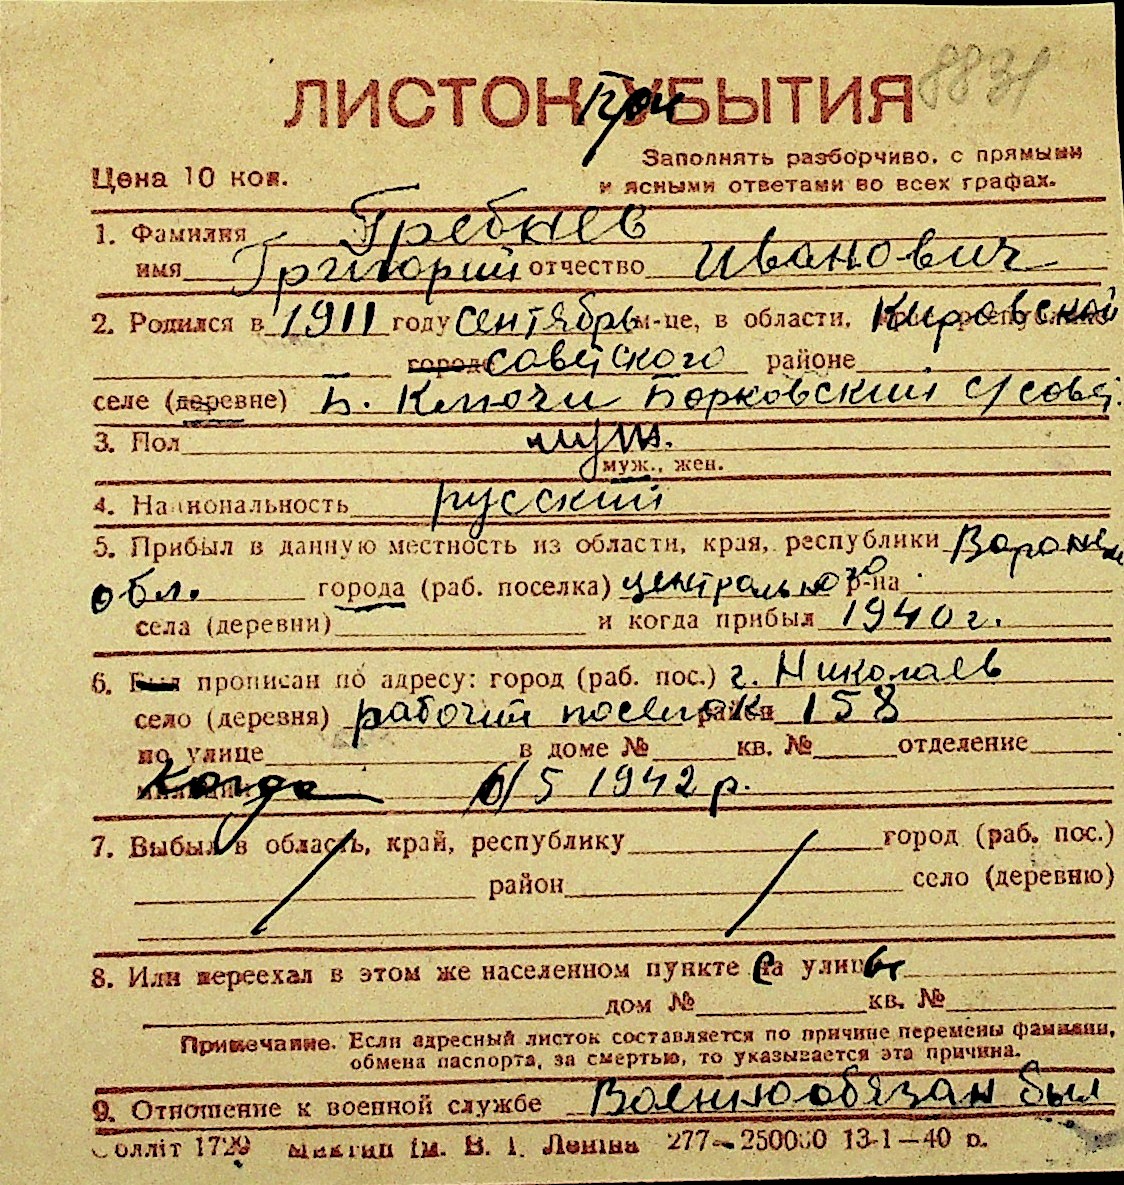 8831
ЛИСТОК УБЫТИЯ
Цена 10 коп.
Заполнять разборчиво, с прямыми
и ясными ответами во всех графах.
1. Фамилия Гребнев
имя Григорий отчество Иванович
2. Родился в 1911 году сентябрь м-це, в области, Кировской
городе советского районе
селе (деревне) Б. Ключи Борковский с/совет.
3. Пол муж.
муж., жен.
4. Национальность русский
5. Прибыл в данную местность из области, края, республики Воронеж
обл. города (раб. поселка) центрального р-на
села (деревни) и когда прибыл 1940 г.
6. Был прописан по адресу: город (раб. пос.) г. Николаев
село (деревня) рабочий поселок район 158
по улице в доме № кв. № отделение
милиции Когда 6/5 1942 р.
7. Выбыл в область, край, республику город (раб. пос.)
район село (деревню)
8. Или переехал в этом же населенном пункте на улицу
дом № кв. №
Примечание. Если адресный листок составляется по причине перемены фамилии,
обмена паспорта, за смертью, то указывается эта причина.
9. Отношение к военной службе Военнообязан был
Облліт 1729 Миктип ім. В. І. Леніна 277—250000 13-1—40 р.